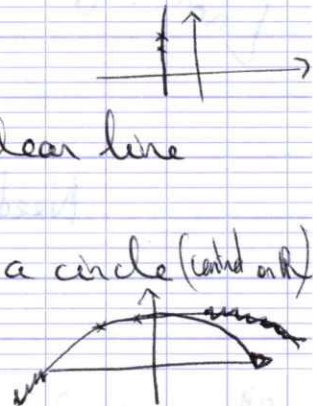 lean line
a circle (centred on ℝ)